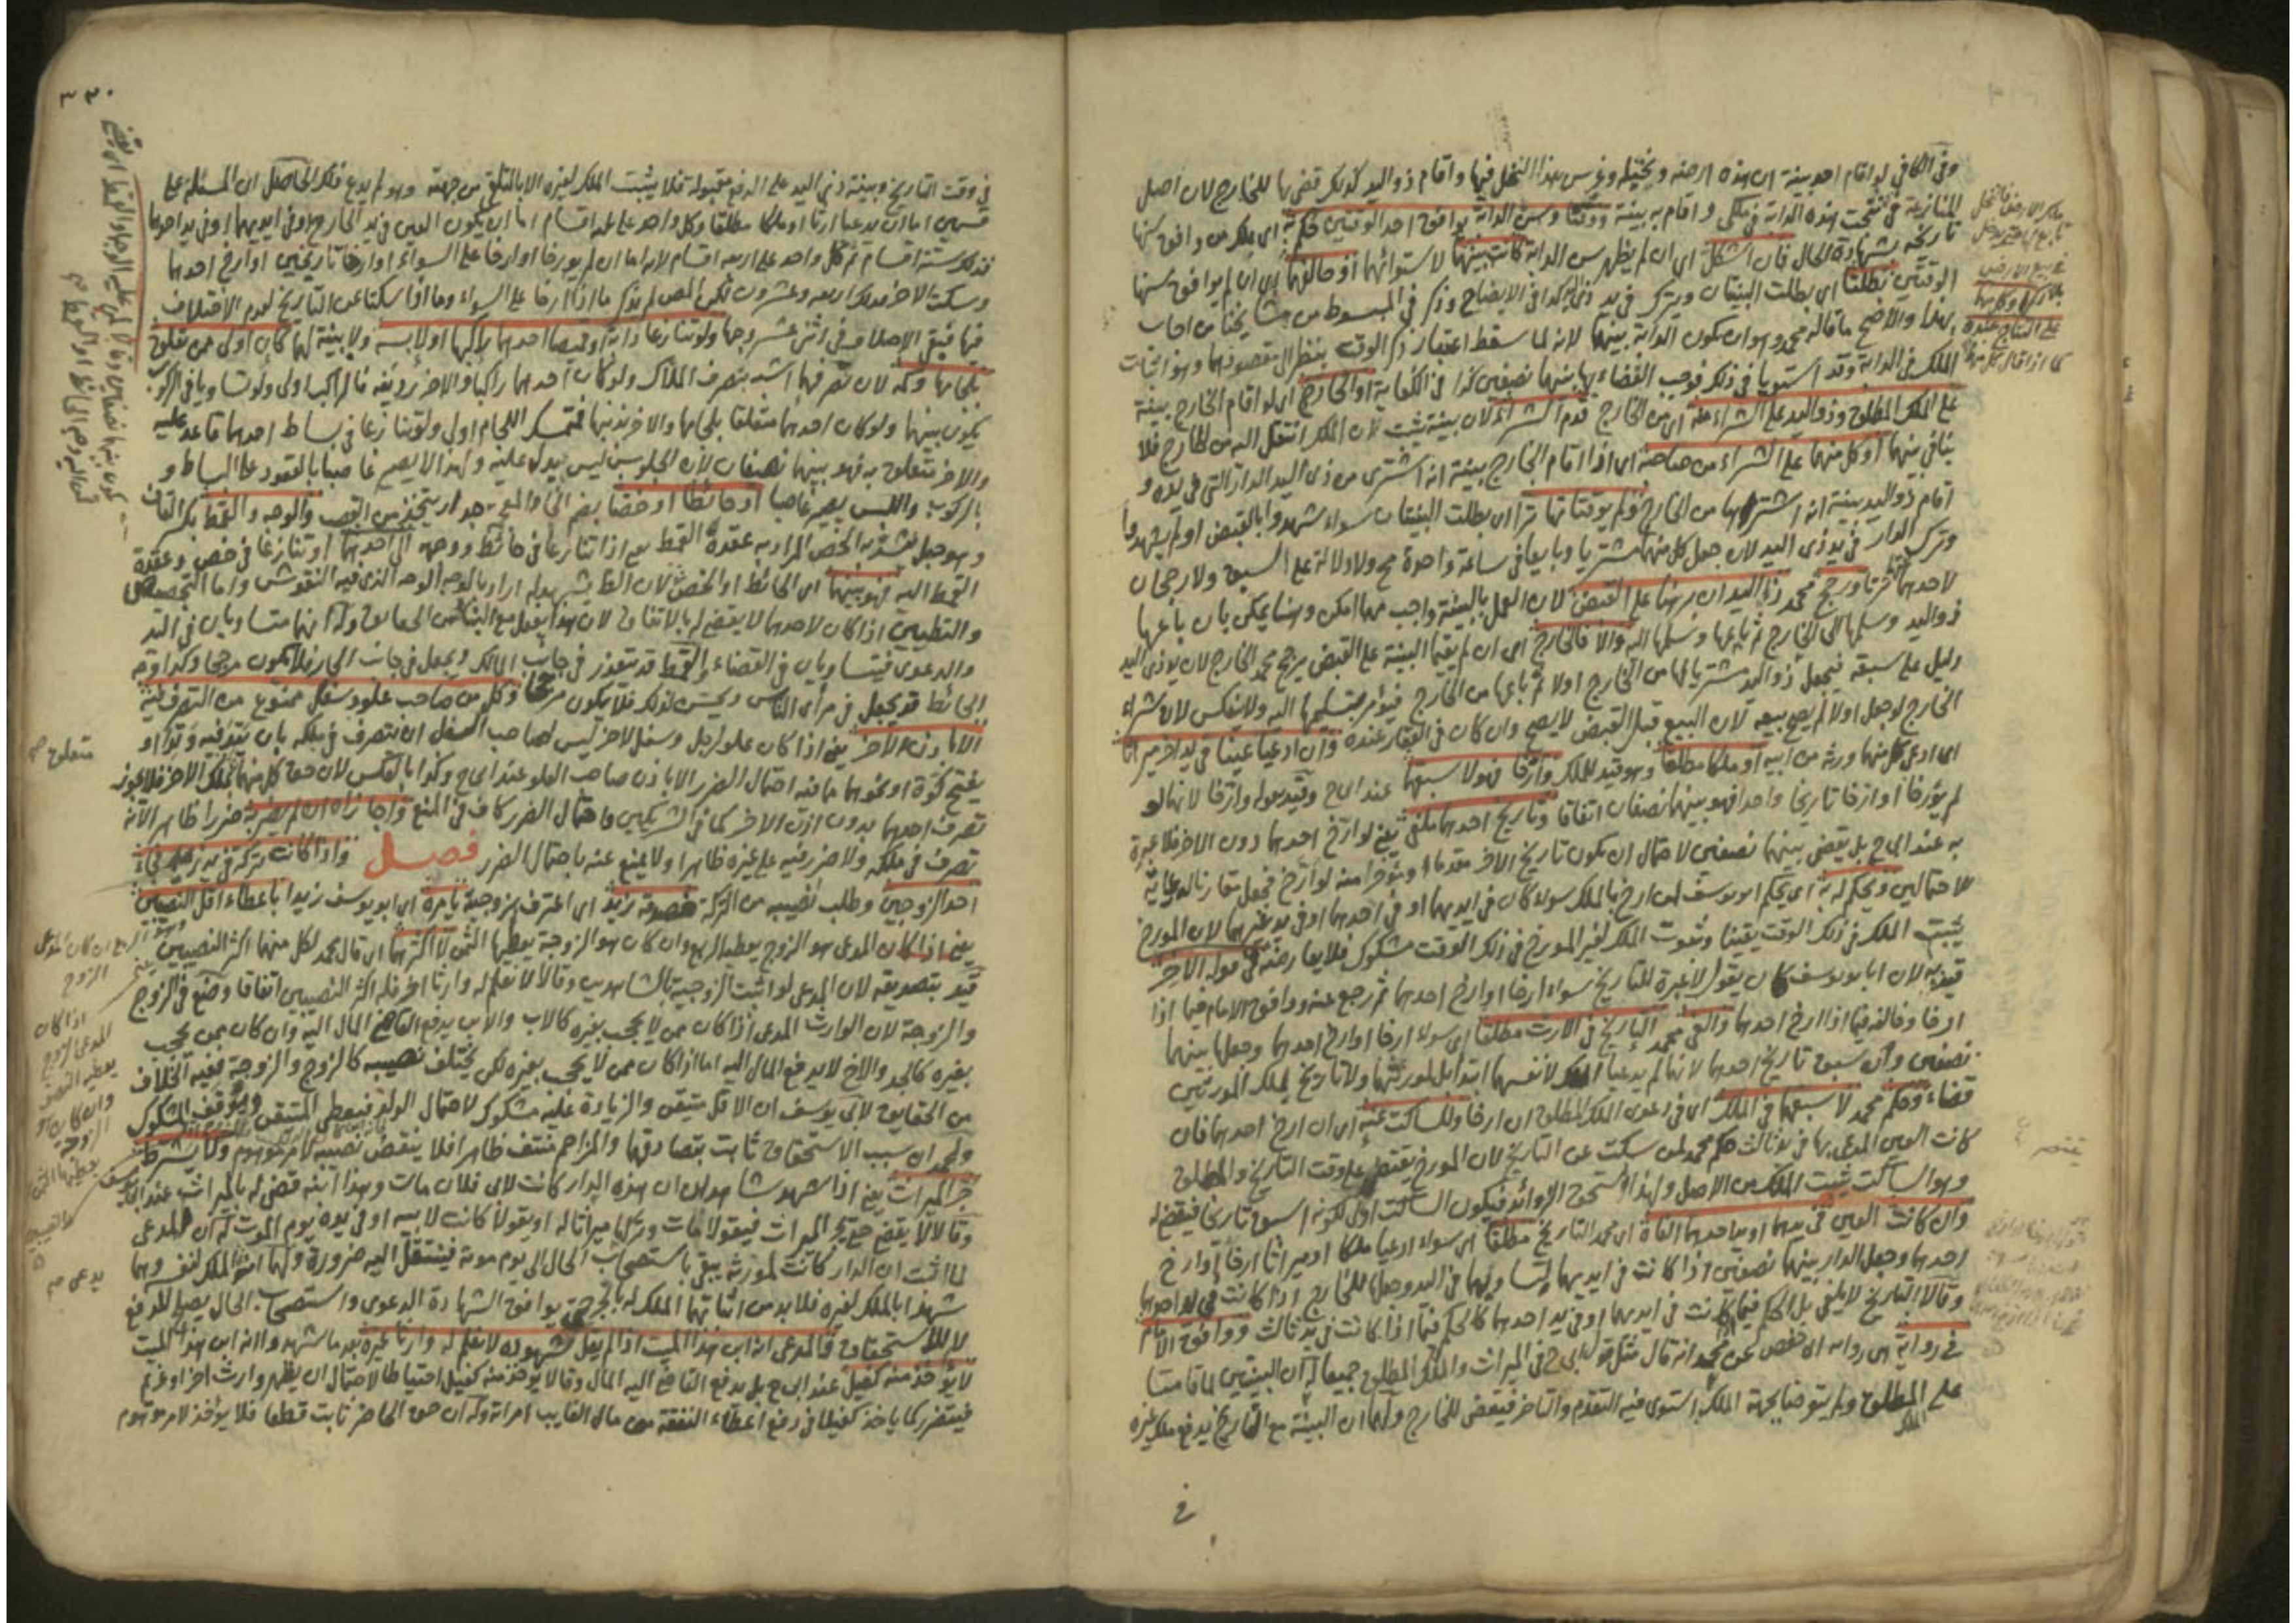 وفي الكافي لو اقام احد بينة ان هذه ارضه ونخيله وغرس هذا النخل فيها واقام ذو اليد كذلك قضى بها للخارج لان اصل
المنازعة في نتجت هذه الدابة في ملكي واقام به بينة ووقتا وسن الدابة يوافق احد الوقتين حكم به اي بملك من وافق سنها
تاريخه بشهادة الحال فان اشكل اي ان لم يظهر سن الدابة كانت بينهما لاستوائهما او خالفهما اي ان لم يوافق سنها
الوقتين بطلتا اي بطلت البينتان ويترك في يد ذي اليد كذا في الايضاح وذكر في المبسوط من مشايخنا من اجاب
بهذا والاصح ما قاله محمد وهو ان تكون الدابة بينهما لانه لما سقط اعتبار ذكر الوقت ينظر الى مقصودهما وهو اثبات
الملك في الدابة وقد استويا في ذلك فوجب القضاء بها بينهما نصفين كذا في الكفاية او الخارج اي لو اقام الخارج بينة
على الملك المطلق وذو اليد على الشراء منه اي من الخارج قدم الشراء لان بينته تثبت ان الملك انتقل اليه من الخارج فلا
تنافي بينهما او كل منهما على الشراء من صاحبه اي اذا اقام الخارج بينة انه اشترى من ذي اليد الدار التي في يده و
اقام ذو اليد بينة انه اشتراها من الخارج ولم يوقتا تهاترا اي بطلت البينتان سواء شهدوا بالقبض او لم يشهدوا
وترك الدار في يد ذي اليد لان جعل كل منهما مشتريا وبايعا في ساعة واحدة مح ولا دلالة على السبق ولا رجحان
لاحدهما فتهاترتا ورجح محمد ذا اليد ان برهنا على القبض لان العمل بالبينة واجب مهما امكن وهنا يمكن بان باعها
ذو اليد وسلمها الى الخارج ثم باعها وسلمها اليه والا فالخارج اي ان لم يقيما البينة على القبض يرجح محمد الخارج لان يد ذي اليد
دليل على سبقه فيجعل ذو اليد مشتريا لها من الخارج اولا ثم باعها من الخارج فيؤمر بتسليمها اليه ولا ينعكس لان شراء
الخارج لو جعل اولا لم يصح بيعه لان البيع قبل القبض لا يصح وان كان في العقار عنده وان ادعيا عينا في يد اخر ميراثا
اي ادعى كل منهما ورثه من ابيه او ملكا مطلقا وهو قيد للملك وارخا فهو لاسبقهما عند ابي ح وقيد بقوله وارخا لانهما لو
لم يؤرخا او ارخا تاريخا واحدا فهو بينهما نصفان اتفاقا وتاريخ احدهما ملغى يعني لو ارخ احدهما دون الاخر فلا عبرة
به عند ابي ح بل يقضى بينهما نصفين لاحتمال ان يكون تاريخ الاخر مقدما او مؤخرا منه لو ارخ فجعل مقارنا لرعاية
الاحتمالين ويحكم له به اي يحكم ابو يوسف لمن ارخ بالملك سواء كان في ايديهما او في احدهما او في يد غيرهما لان المورخ
يثبت الملك في ذلك الوقت يقينا وثبوت الملك لغير المورخ في ذلك الوقت مشكوك فلا يعارضه في قوله الاخر
قيد به لان ابا يوسف كان يقول لا عبرة للتاريخ سواء ارخا او ارخ احدهما ثم رجع عنه ووافق الامام فيما اذا
ارخا وخالفه فيما اذا ارخ احدهما والغى محمد التاريخ في الارث مطلقا اي سواء ارخا او ارخ احدهما وجعلها بينهما
نصفين وان سبق تاريخ احدهما لانهما لم يدعيا الملك لانفسهما ابتداء بل لمورثهما ولا تاريخ لملك المورثين
قضاء وحكم محمد لاسبقهما في الملك اي في دعوى الملك المطلق ان ارخا وللساكت عنه اي ان ارخ احدهما فان
كانت العين المدعى بها في يد ثالث حكم محمد لمن سكت عن التاريخ لان المورخ يقتصر على وقت التاريخ والمطلق
وهو الساكت يثبت الملك من الاصل ولهذا يستحق الزوائد فيكون الساكت اولى لكونه اسبق تاريخا فيقضى له
وان كانت العين في يدهما او يد احدهما الغاه اي محمد التاريخ مطلقا اي سواء ادعيا ملكا او ميراثا ارخا او ارخ
احدهما وجعل الدار بينهما نصفين اذا كانت في ايديهما لتساويهما في اليد وجعلها للخارج اذا كانت في يد احدهما
وقالا التاريخ لا يلغى بل الحكم فيما كانت في ايديهما او في يد احدهما كالحكم فيما اذا كانت في يد ثالث ووافق الامام
في رواية اي رواية ابي حفص عن محمد انه قال مثل قول ابي ح في الميراث والملك المطلق جميعا له ان البينتين لما قامتا
على المطلق ولم يتعرضا لجهة الملك استوى فيه التقدم والتاخر فيقضى للخارج ولهما ان البينة مع التاريخ يدفع ملك غيره
الملك
في
٣٣٠
في وقت التاريخ وبينة ذي اليد على الدفع مقبولة فلا يثبت الملك لغيره الا بالتلقي من جهته وهو لم يدع ذلك الحاصل ان المسئلة على
قسمين اما ان يدعيا ارثا او ملكا مطلقا وكل واحد على ثلثة اقسام اما ان يكون العين في يد الخارج او في ايديهما او في يد احدهما
فتلك ستة اقسام ثم كل واحد على اربعة اقسام لانه اما ان لم يورخا او ارخا على السواء او ارخا تاريخين او ارخ احدهما
وسكت الاخر فذلك اربعة وعشرون لكن المص لم يذكر ما اذا ارخا على السواء وما اذا سكتا عن التاريخ لعدم الاختلاف
فيها فبقي الاختلاف في اثني عشر وجها ولو تنازعا دابة او قميصا احدهما راكبها او لابسه ولا بينة لهما كان اولى ممن تعلق
بلجامها وكمه لان تصرفهما اشبه بتصرف الملاك ولو كان احدهما راكبا والاخر رديفه فالراكب اولى ولو تساويا في الركوب
يكون بينهما ولو كان احدهما متعلقا بلجامها والاخر بذنبها فمتمسك اللجام اولى ولو تنازعا في بساط احدهما قاعد عليه
والاخر متعلق به فهو بينهما نصفان لان الجلوس ليس بيد عليه ولهذا لا يصير غاصبا بالقعود على البساط و
بالركوب واللبس يصير غاصبا او حائطا او خصا بضم الخاء المعجمة جدار يتخذ من القصب والوجه والقمط بكسر القاف
وهو حبل يشد به الخص المراد به عقدة القمط يعني اذا تنازعا في حائط ووجهه الى احدهما او تنازعا في خص وعقدة
القمط اليه فهو بينهما اي الحائط او الخص لان الظ يشهد له اراد بالوجه الوجه الذي فيه النقوش واما التجصيص
والتطيين اذا كان لاحدهما لا يقضى له بالاتفاق لان هذا يفعل مع البناء من الحقايق وله انهما متساويان في اليد
والدعوى فيتساويان في القضاء والقمط قد يتعذر في جانب المالك ويجعل في جانب الجار فلا يكون مرجحا وكذا وجه
الحائط قد يجعل في مرأى الناس ويحسن لذلك فلا يكون مرجحا وكل من صاحب علو وسفل ممنوع من التصرف فيه
الا باذن الاخر يعني اذا كان علو لرجل وسفل لاخر ليس لصاحب السفل ان يتصرف في ملكه بان يتد فيه وتدا او
يفتح كوة او نحوهما مما فيه احتمال الضرر الا باذن صاحب العلو عند ابي ح وكذا بالعكس لان حق كل منهما بملك الاخر فلا يجوز
تصرف احدهما بدون اذن الاخر كما في الشريكين واحتمال الضرر كاف في المنع واجازاه ان لم يضر به ضررا ظاهرا لانه
تصرف في ملكه ولا ضرر فيه على غيره ظاهرا ولا يمنع عنه باحتمال الضرر فصل واذا كانت تركة في يد زيد فجاء
احد الزوجين وطلب نصيبه من التركة فصدقه زيد اي اعترف بزوجيته يامره اي ابو يوسف زيدا باعطاء اقل النصيبين
يعني اذا كان المدعي هو الزوج يعطيه الربع وان كان هو الزوجة يعطيها الثمن لا اكثرهما اي قال محمد لكل منهما اكثر النصيبين
قيد بتصديقه لان المدعي لو اثبت الزوجية بالشاهدين وقالا لا نعلم له وارثا اخر فله اكثر النصيبين اتفاقا وضع في الزوج
والزوجة لان الوارث المدعي اذا كان ممن لا يحجب بغيره كالاب والابن يدفع القاضي المال اليه وان كان ممن يحجب
بغيره كالجد والاخ لا يدفع المال اليه اما اذا كان ممن لا يحجب بغيره لكن يختلف نصيبه كالزوج والزوجة ففيه الخلاف
من الحقايق لابي يوسف ان الاقل متيقن والزيادة عليه مشكوك لاحتمال الولد فيعطى المتيقن ويوقف المشكوك
ولمحمد ان سبب الاستحقاق ثابت بتصادقهما والمزاحم منتف ظاهرا فلا ينقض نصيبه لامر موهوم ولا يشترط
جر الميراث يعني اذا شهد شاهدان ان هذه الدار كانت لابي فلان مات وهذا ابنه قضي له بالميراث عند ابي يوسف
وقالا لا يقضى حتى يجر الميراث فيقولا مات وتركها ميراثا له او يقولا كانت لابيه او في يده يوم الموت له ان المدعي
لما اثبت ان الدار كانت لمورثه يبقى باستصحاب الحال الى يوم موته فينتقل اليه ضرورة ولهما ان الملك لنفسه وهما
شهدا بالملك لغيره فلا بد من اثباتهما الملك له بالجر حتى يوافق الشهادة الدعوى واستصحاب الحال يصلح للدفع
لا للاستحقاق فالمدعي انه ابن هذا الميت اذا لم يقل شهوده لا نعلم له وارثا غيره بعد ما شهدوا انه ابن هذا الميت
لا يؤخذ منه كفيل عند ابي ح بل يدفع القاضي اليه المال وقالا يؤخذ منه كفيل احتياطا لاحتمال ان يظهر وارث اخر او غريم
فيتضرر كما ياخذ كفيلا في دفع اعطاء النفقة من مال الغايب امراته وله ان حق الحاضر ثابت قطعا فلا يؤخذ لامر موهوم
متعلق صح
اذا كان
المدعي الزوج
يعطيه النصف
وان كان هو
الزوجة
يعطيها الثمن
يدعي صح